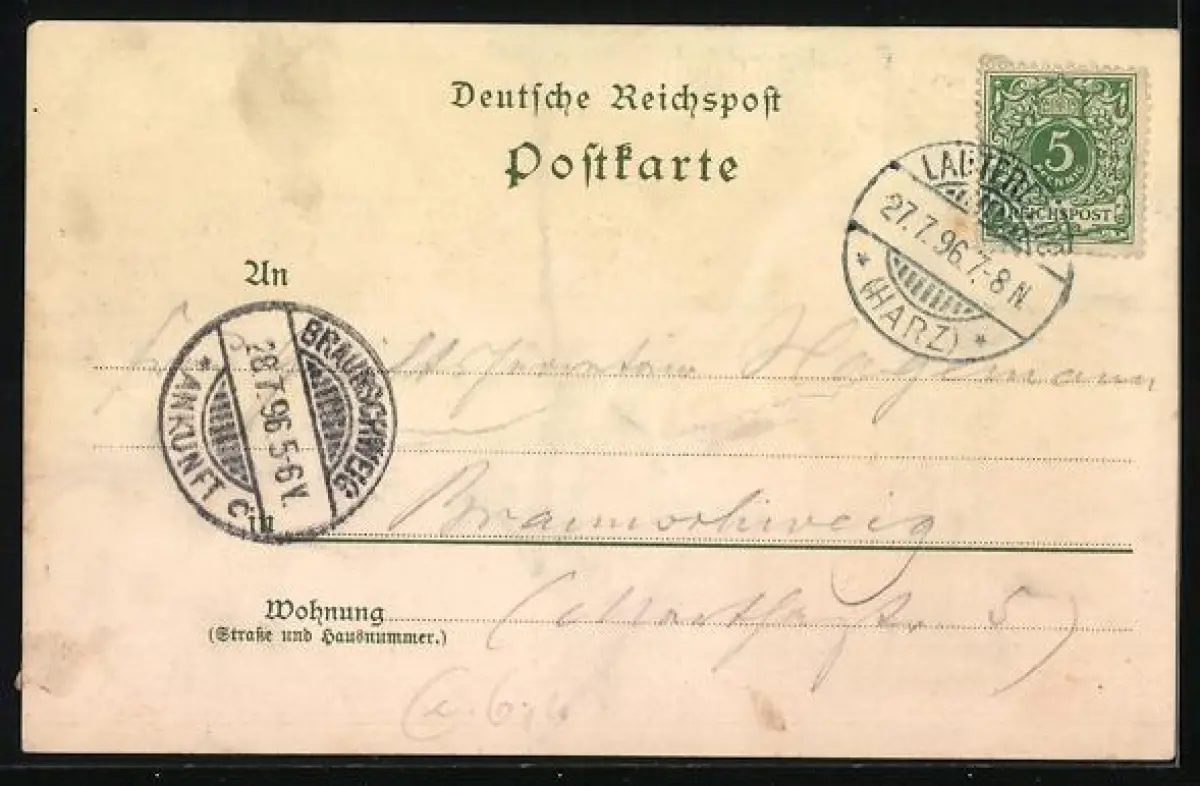 Deutsche Reichspost
Postkarte
5
REICHSPOST
LAUTERBERG
27.7.96.7-8N.
* (HARZ) *
An
BRAUNSCHWEIG
28.7.96.5-6V.
* ANKUNFT C
Hagemann
in
Braunschweig
Wohnung
5)
(Straße und Hausnummer.)